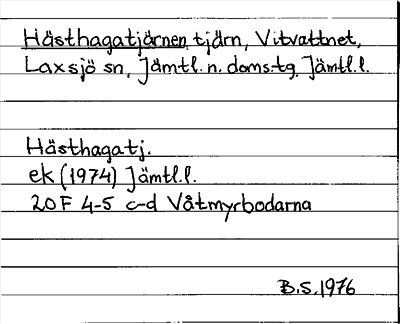 Hästhagatjärnen, tjärn, Vitvattnet,
Laxsjö sn, Jämtl. n. doms.tg, Jämtl.l.
Hästhagatj.
ek (1974) Jämtl.l.
20F 4-5 c-d Våtmyrbodarna
B.S. 1976